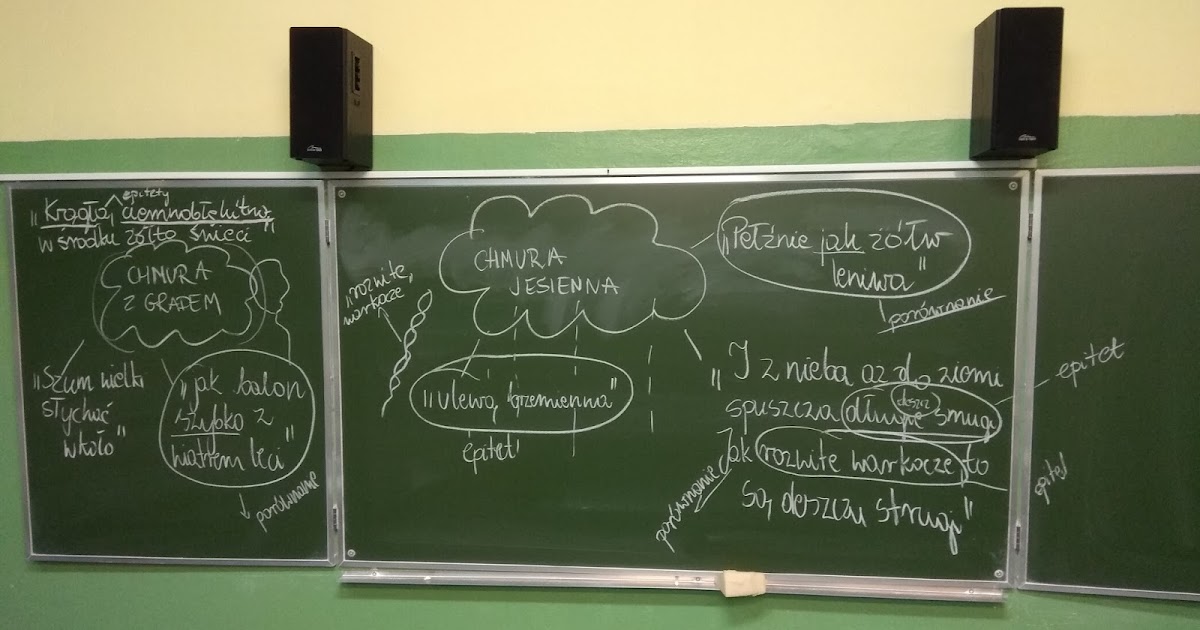 epitety
„Krągła, ciemnobłękitna,
w środku żółto świeci"
CHMURA
Z GRADEM
„Szum wielki
słychać
wkoło"
„jak balon
szybko z
wiatrem leci"
porównanie
„rozwite,
warkocze
CHMURA
JESIENNA
„ulewą, brzemienna"
epitet
„Pełźnie jak żółw
leniwa"
porównanie
„I z nieba aż do ziemi
deszcz
spuszcza długie smugi
Jak rozwite warkocze, to
są deszczu strugi"
porównanie
epitet
epitet